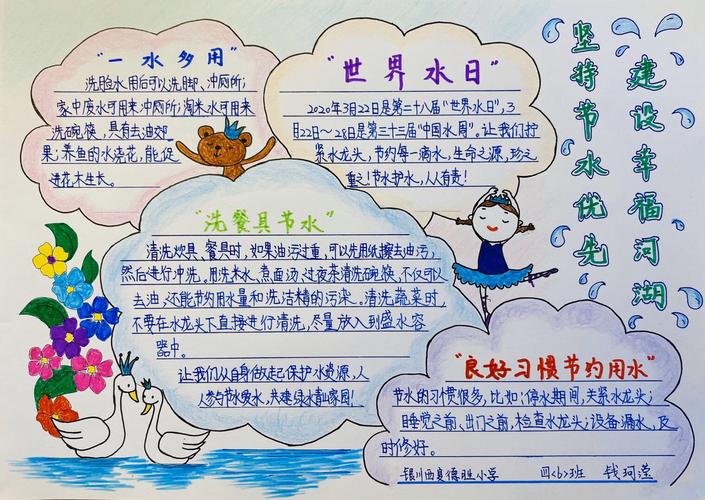 坚持节水优先
建设幸福河湖
"一水多用"
洗脸水用后可以洗脚、冲厕所；
家中废水可用来冲厕所；淘米水可用来
洗碗筷，具有去油效
果；养鱼的水浇花，能促
进花木生长。
"世界水日"
2020年3月22日是第二十八届"世界水日"，3
月22日～28日是第三十三届"中国水周"。让我们拧
紧水龙头，节约每一滴水，生命之源，珍之
重之！节水护水，人人有责！
"洗餐具节水"
清洗炊具、餐具时，如果油污过重，可以先用纸擦去油污，
然后进行冲洗。用洗米水、煮面汤、过夜茶清洗碗筷，不仅可以
去油，还能节约用水量和洗洁精的污染。清洗蔬菜时，
不要在水龙头下直接进行清洗，尽量放入到盛水容
器中。
让我们从自身做起保护水资源，人
人参与节水爱水，共建绿水青山家园！
"良好习惯节约用水"
节水的习惯很多，比如：停水期间，关紧水龙头；
睡觉之前、出门之前，检查水龙头；设备漏水，及
时修好。
银川西夏德胜小学 四<6>班 钱珂滢